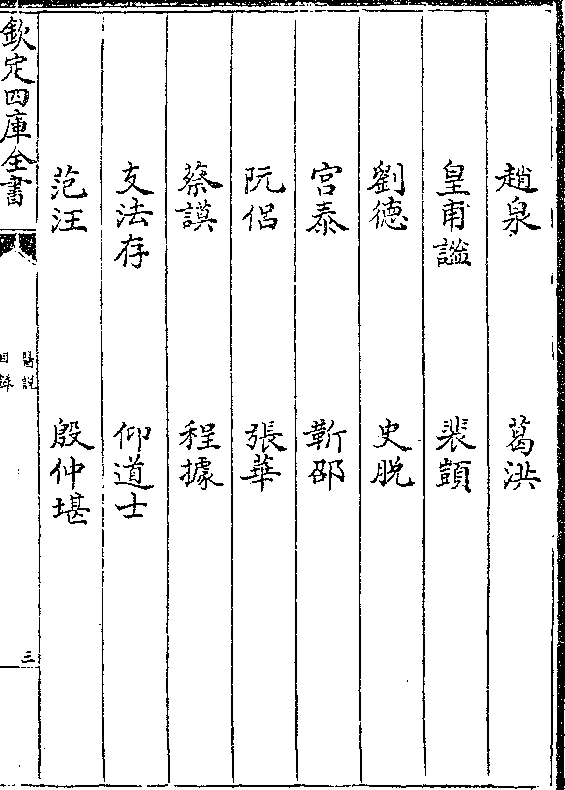 趙泉　葛洪
皇甫謐　裴頠
劉德　史脱
宮泰　靳邵
阮侶　張華
蔡謨　程據
支法存　仰道士
范汪　殷仲堪
欽定四庫全書
醫説
目錄
三